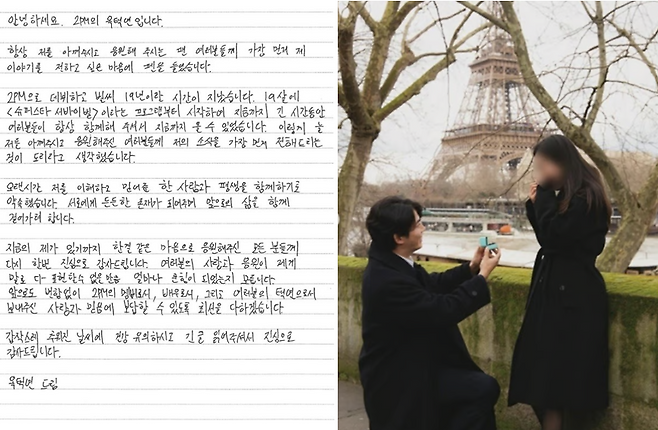 안녕하세요. 2PM의 옥택연입니다.
항상 저를 아껴주시고 응원해 주시는 팬 여러분들께 가장 먼저 제
이야기를 전하고 싶은 마음에 펜을 들었습니다.
2PM으로 데뷔하고 벌써 19년이란 시간이 지났습니다. 19살에
<슈퍼스타 서바이벌>이라는 프로그램부터 시작하여 지금까지 긴 시간동안
여러분들이 항상 함께해 주셔서 지금까지 올 수 있었습니다. 이렇게 늘
저를 아껴주시고 응원해주신 여러분들께 저의 소식을 가장 먼저 전해드리는
것이 도리라고 생각했습니다.
오랜시간 저를 이해하고 믿어준 한 사람과 평생을 함께하기로
약속했습니다. 서로에게 든든한 존재가 되어주며 앞으로의 삶을 함께
걸어가려 합니다.
지금의 제가 있기까지 한결 같은 마음으로 응원해주신 모든 분들께
다시 한번 진심으로 감사드립니다. 여러분의 사랑과 응원이 제게
말로 다 표현할 수 없을 만큼 얼마나 큰힘이 되었는지 모릅니다.
앞으로도 변함없이 2PM의 멤버로서, 배우로서, 그리고 여러분의 택연으로서
보내주신 사랑과 믿음에 보답할 수 있도록 최선을 다하겠습니다
갑작스레 추워진 날씨에 건강 유의하시고 긴 글 읽어주셔서 진심으로
감사드립니다.
옥택연 드림